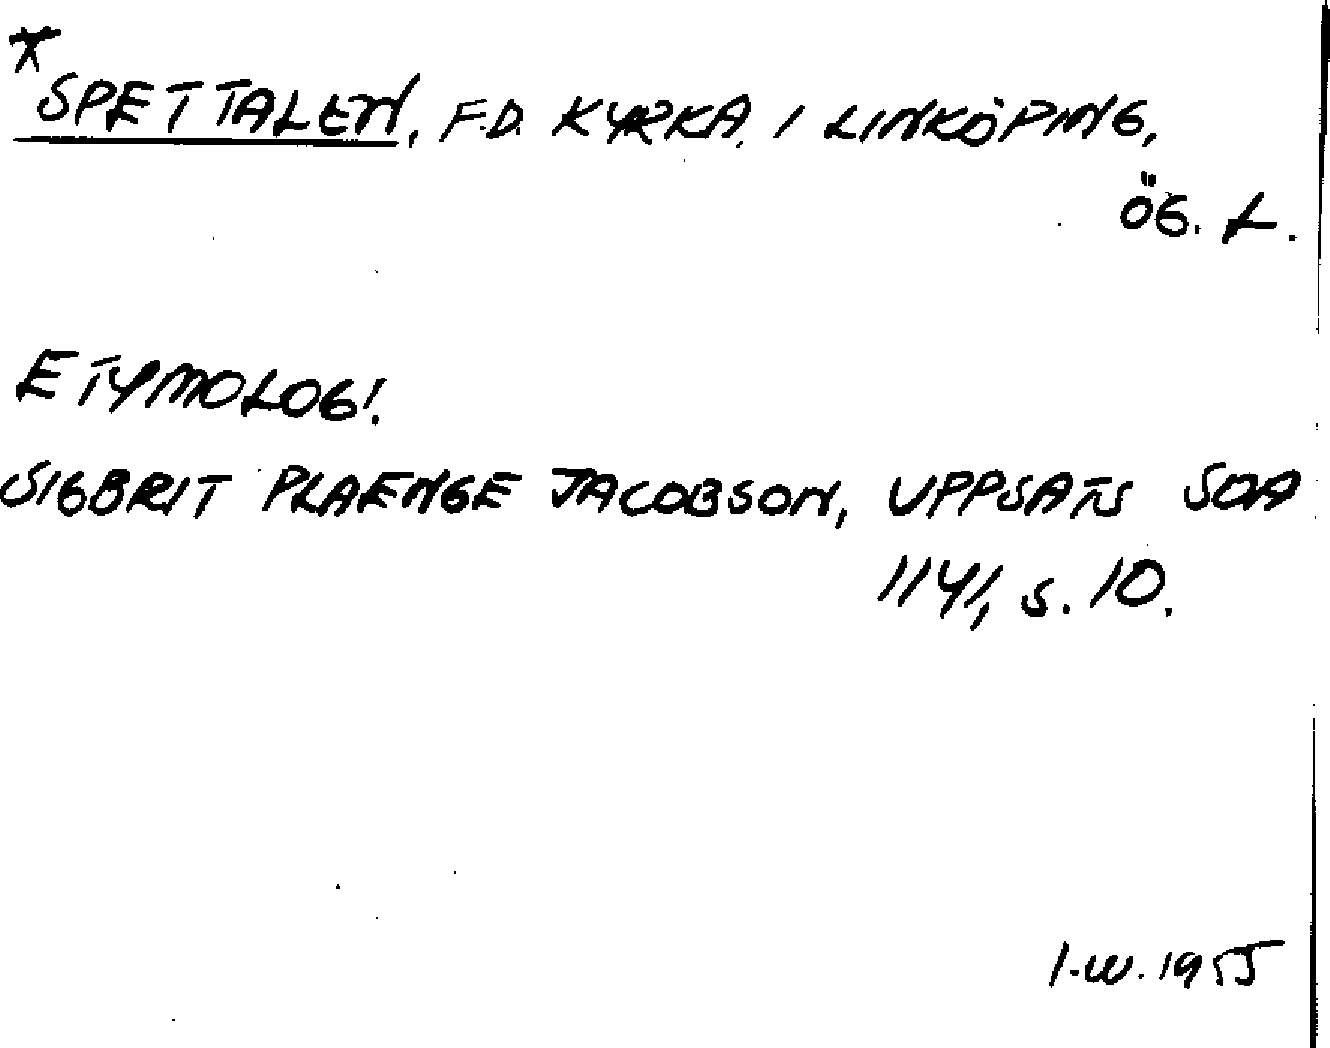 *SPETTALEN, F.D. KYRKA I LINKÖPING,
ÖG. L.
ETYMOLOGI.
SIGBRIT PLAENGE JACOBSON, UPPSATS SOA
1141, s. 10.
I.W. 1955